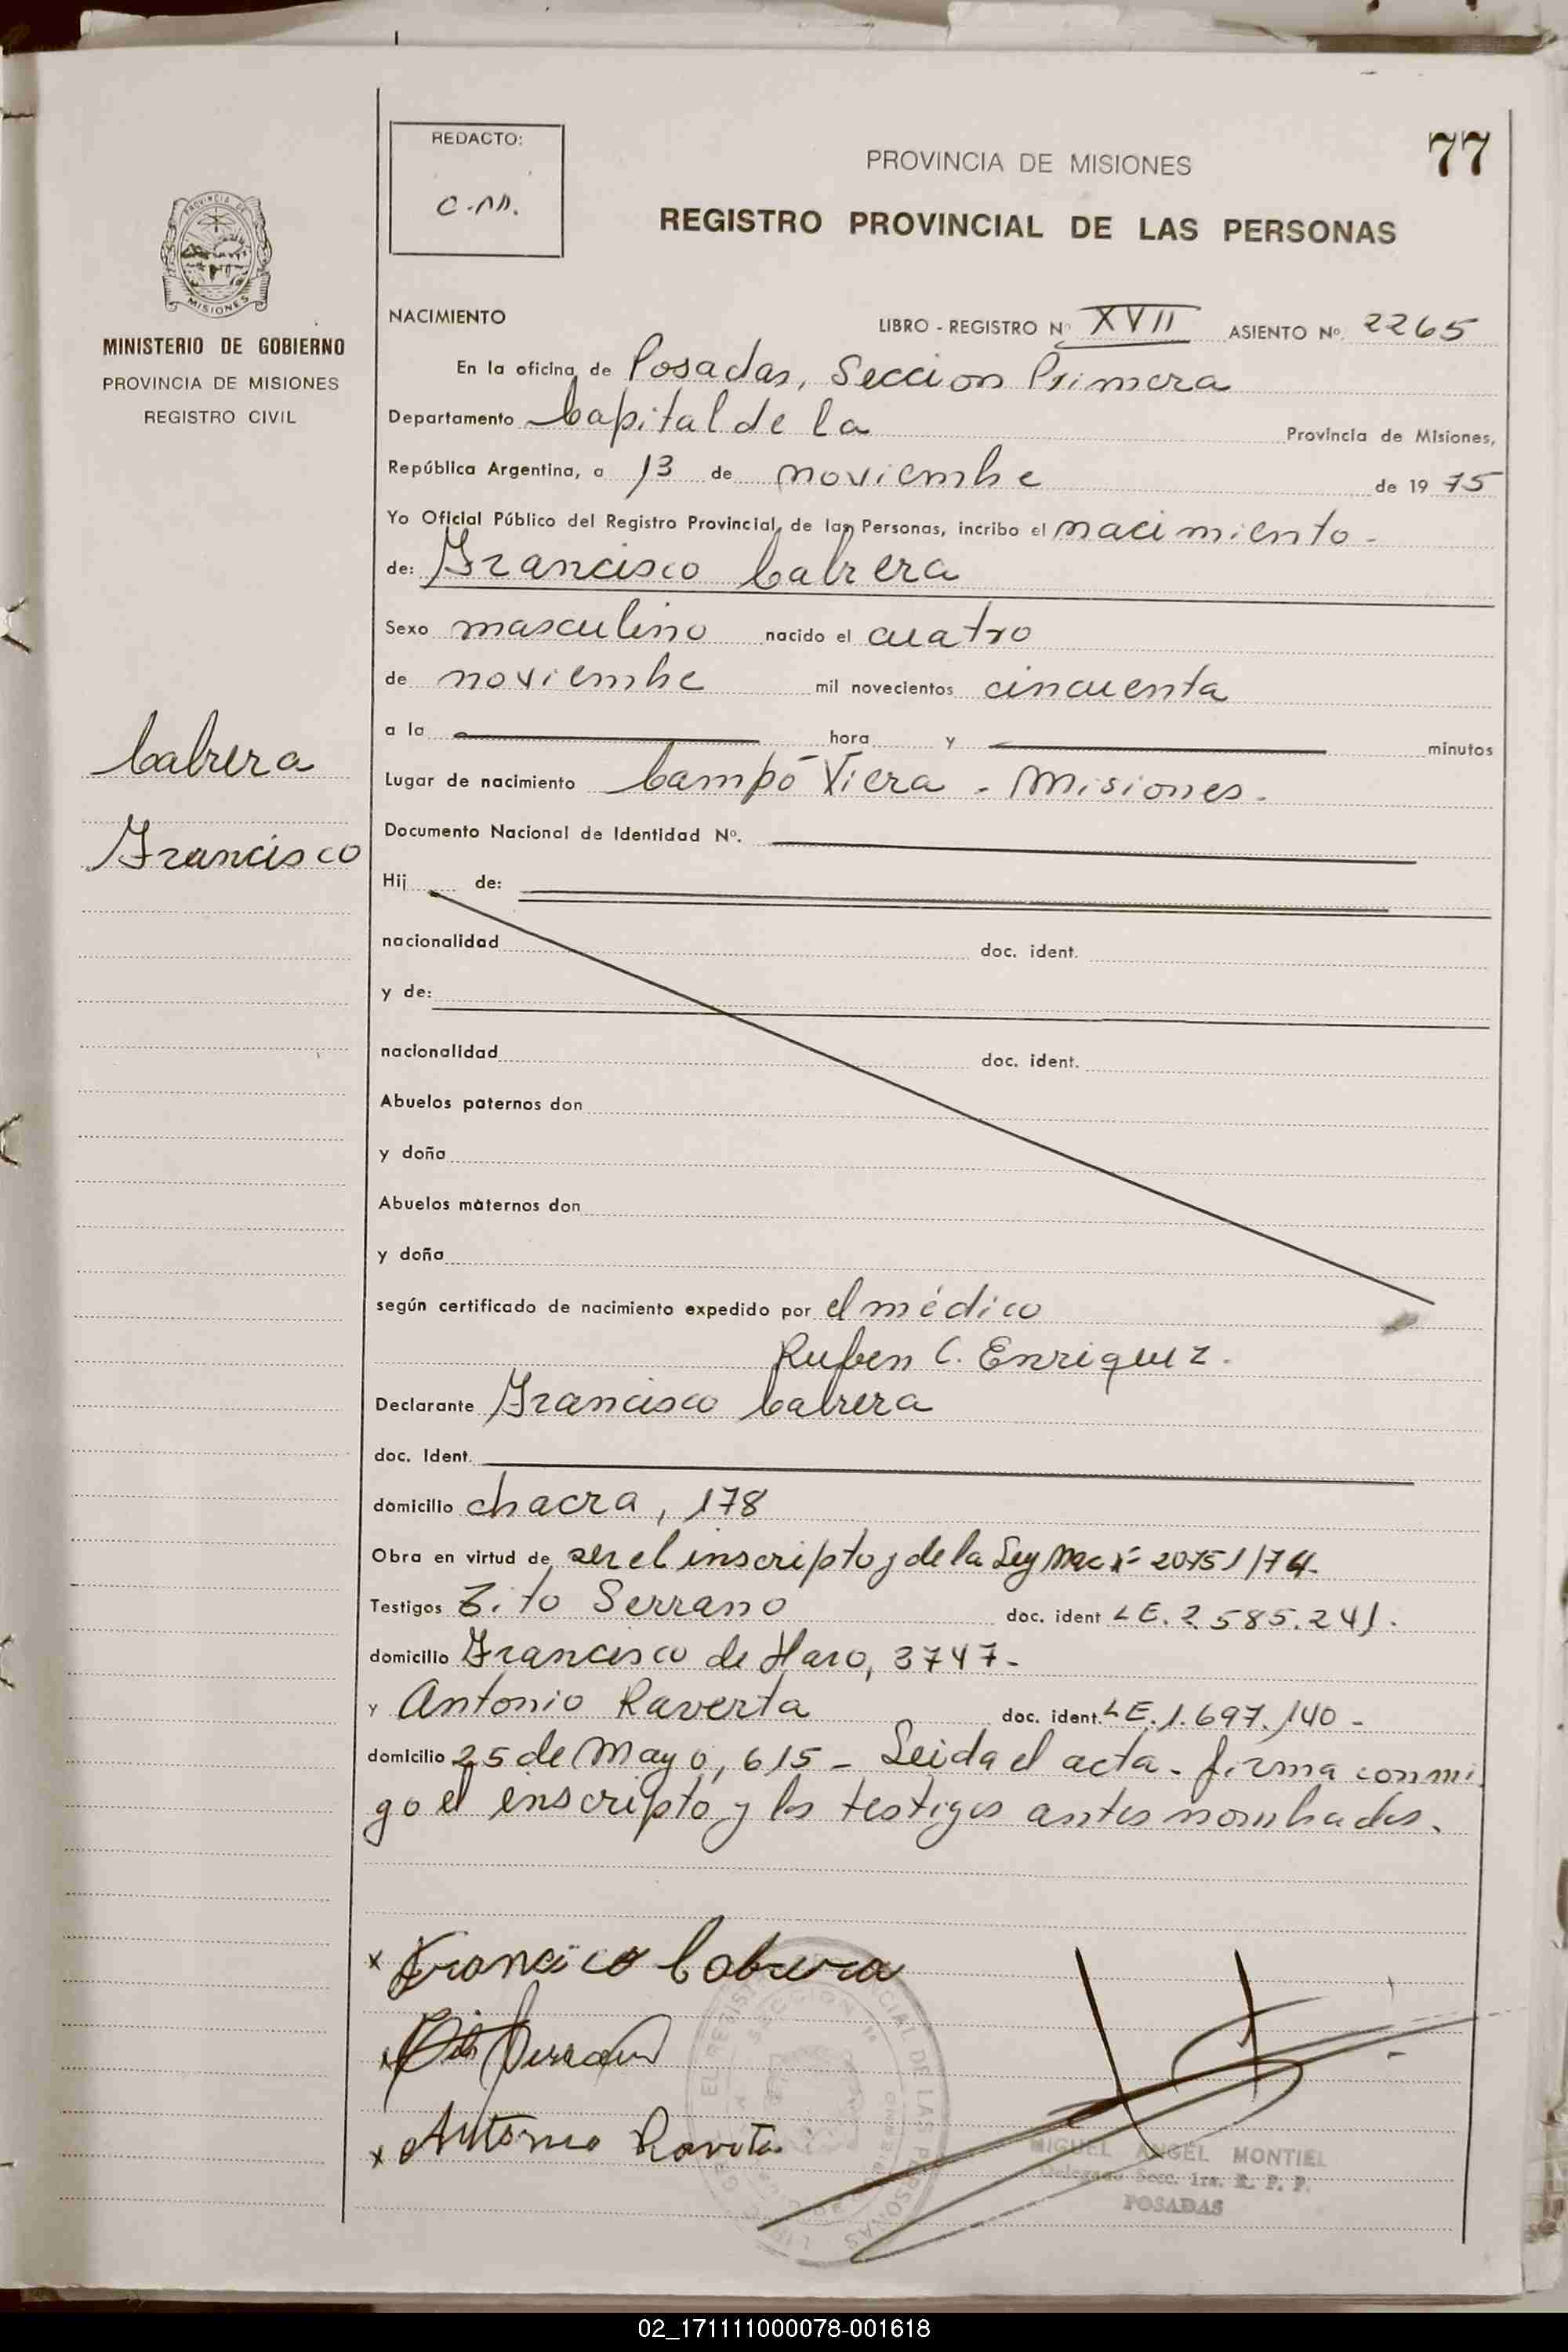 REDACTO:
C.M.
77
PROVINCIA DE MISIONES
REGISTRO PROVINCIAL DE LAS PERSONAS
MISIONES
MINISTERIO DE GOBIERNO
PROVINCIA DE MISIONES
REGISTRO CIVIL
NACIMIENTO LIBRO - REGISTRO Nº XVII ASIENTO Nº 2265
En la oficina de Posadas, Seccion Primera
Departamento Capital de la Provincia de Misiones,
República Argentina, a 13 de noviembre de 19 75
Yo Oficial Público del Registro Provincial de las Personas, incribo el nacimiento -
de: Francisco Cabrera
Sexo masculino nacido el cuatro
de noviembre mil novecientos cincuenta
a la hora y minutos
Cabrera
Francisco
Lugar de nacimiento Campo Viera - Misiones.
Documento Nacional de Identidad Nº.
Hij de:
nacionalidad doc. ident.
y de:
nacionalidad doc. ident.
Abuelos paternos don
y doña
Abuelos maternos don
y doña
según certificado de nacimiento expedido por el médico
Ruben C. Enriquez.
Declarante Francisco Cabrera
doc. Ident.
domicilio chacra, 178
Obra en virtud de ser el inscripto y de la Ley Nac Nº 20751/74.
Testigos Zito Serrano doc. ident LE. 2.585.241.
domicilio Francisco de Haro, 3747-
y Antonio Raverta doc. ident. LE. 1.697.140 -
domicilio 25 de Mayo, 615 - Leida el acta - firma conmi
go el inscripto y los testigos antes nombrados.
x Francisco Cabrera
x Antonio
MIGUEL ANGEL MONTIEL
Delegado Secc. 1ra. R. P. P.
POSADAS
02_171111000078-001618